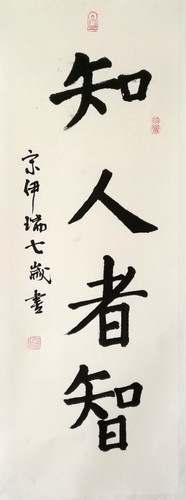 知人者智
宗伊瑞七歲書